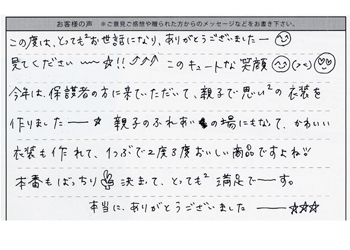 お客様の声 ※ご意見ご感想や贈られた方からのメッセージなどをお書き下さい。
この度は、とっても²お世話になり、ありがとうございましたー
見てください ～～☆!!⤴⤴⤴ このキュートな笑顔
今年は、保護者の方に来ていただいて、親子で思い²の衣装を
作りました～～☆ 親子のふれあいの場にもなって、かわいい
衣装も作れて、1つぶで2度3度おいしい商品ですよね!!
本番もばっちり決まって、とっても²満足でーす。
本当に、ありがとうございました ～～☆☆☆